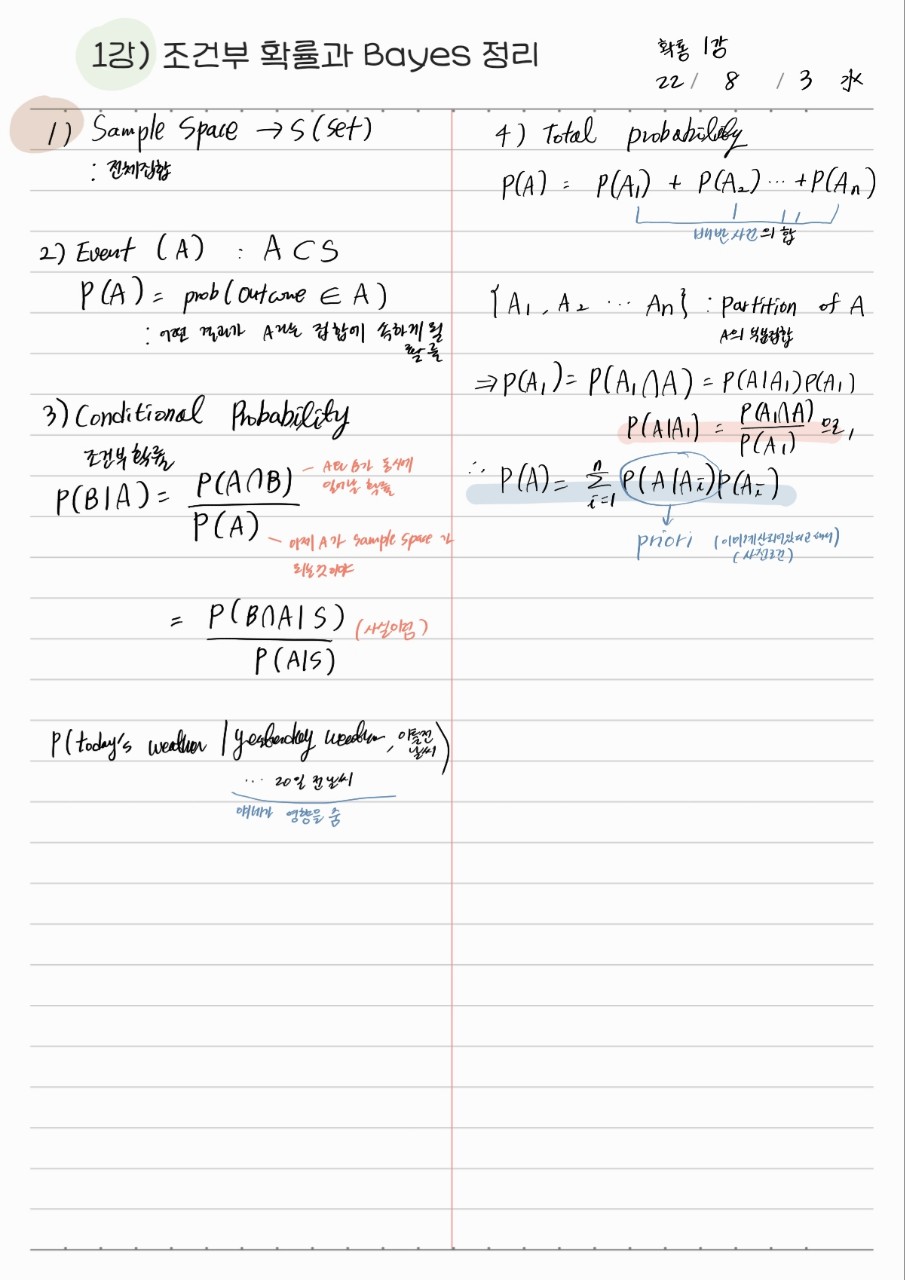 1강) 조건부 확률과 Bayes 정리
확통 1강
22/ 8 / 3 水
1) Sample Space → S (set)
: 전체집합
2) Event (A) : A ⊂ S
P(A) = prob(outcome ∈ A)
: 어떤 결과가 A라는 집합에 속하게 될
확률
3) Conditional Probability
조건부 확률
P(B|A) = P(A∩B) / P(A)
A와 B가 동시에
일어날 확률
이제 A가 Sample Space가
되는것이야
= P(B∩A|S) / P(A|S) (사실이럼)
P(today's weather | yesterday weather, 이틀전 날씨)
… 20일 전 날씨
얘네가 영향을 줌
4) Total probability
P(A) = P(A₁) + P(A₂) … + P(Aₙ)
배반사건의 합
{A₁, A₂ … An} : Partition of A
A의 부분집합
⇒ P(A₁) = P(A₁∩A) = P(A|A₁)P(A₁)
P(A|A₁) = P(A₁∩A) / P(A₁) 으로,
∴ P(A) = Σ_{i=1}^{n} P(A|Aᵢ)P(Aᵢ)
priori
(사전조건)